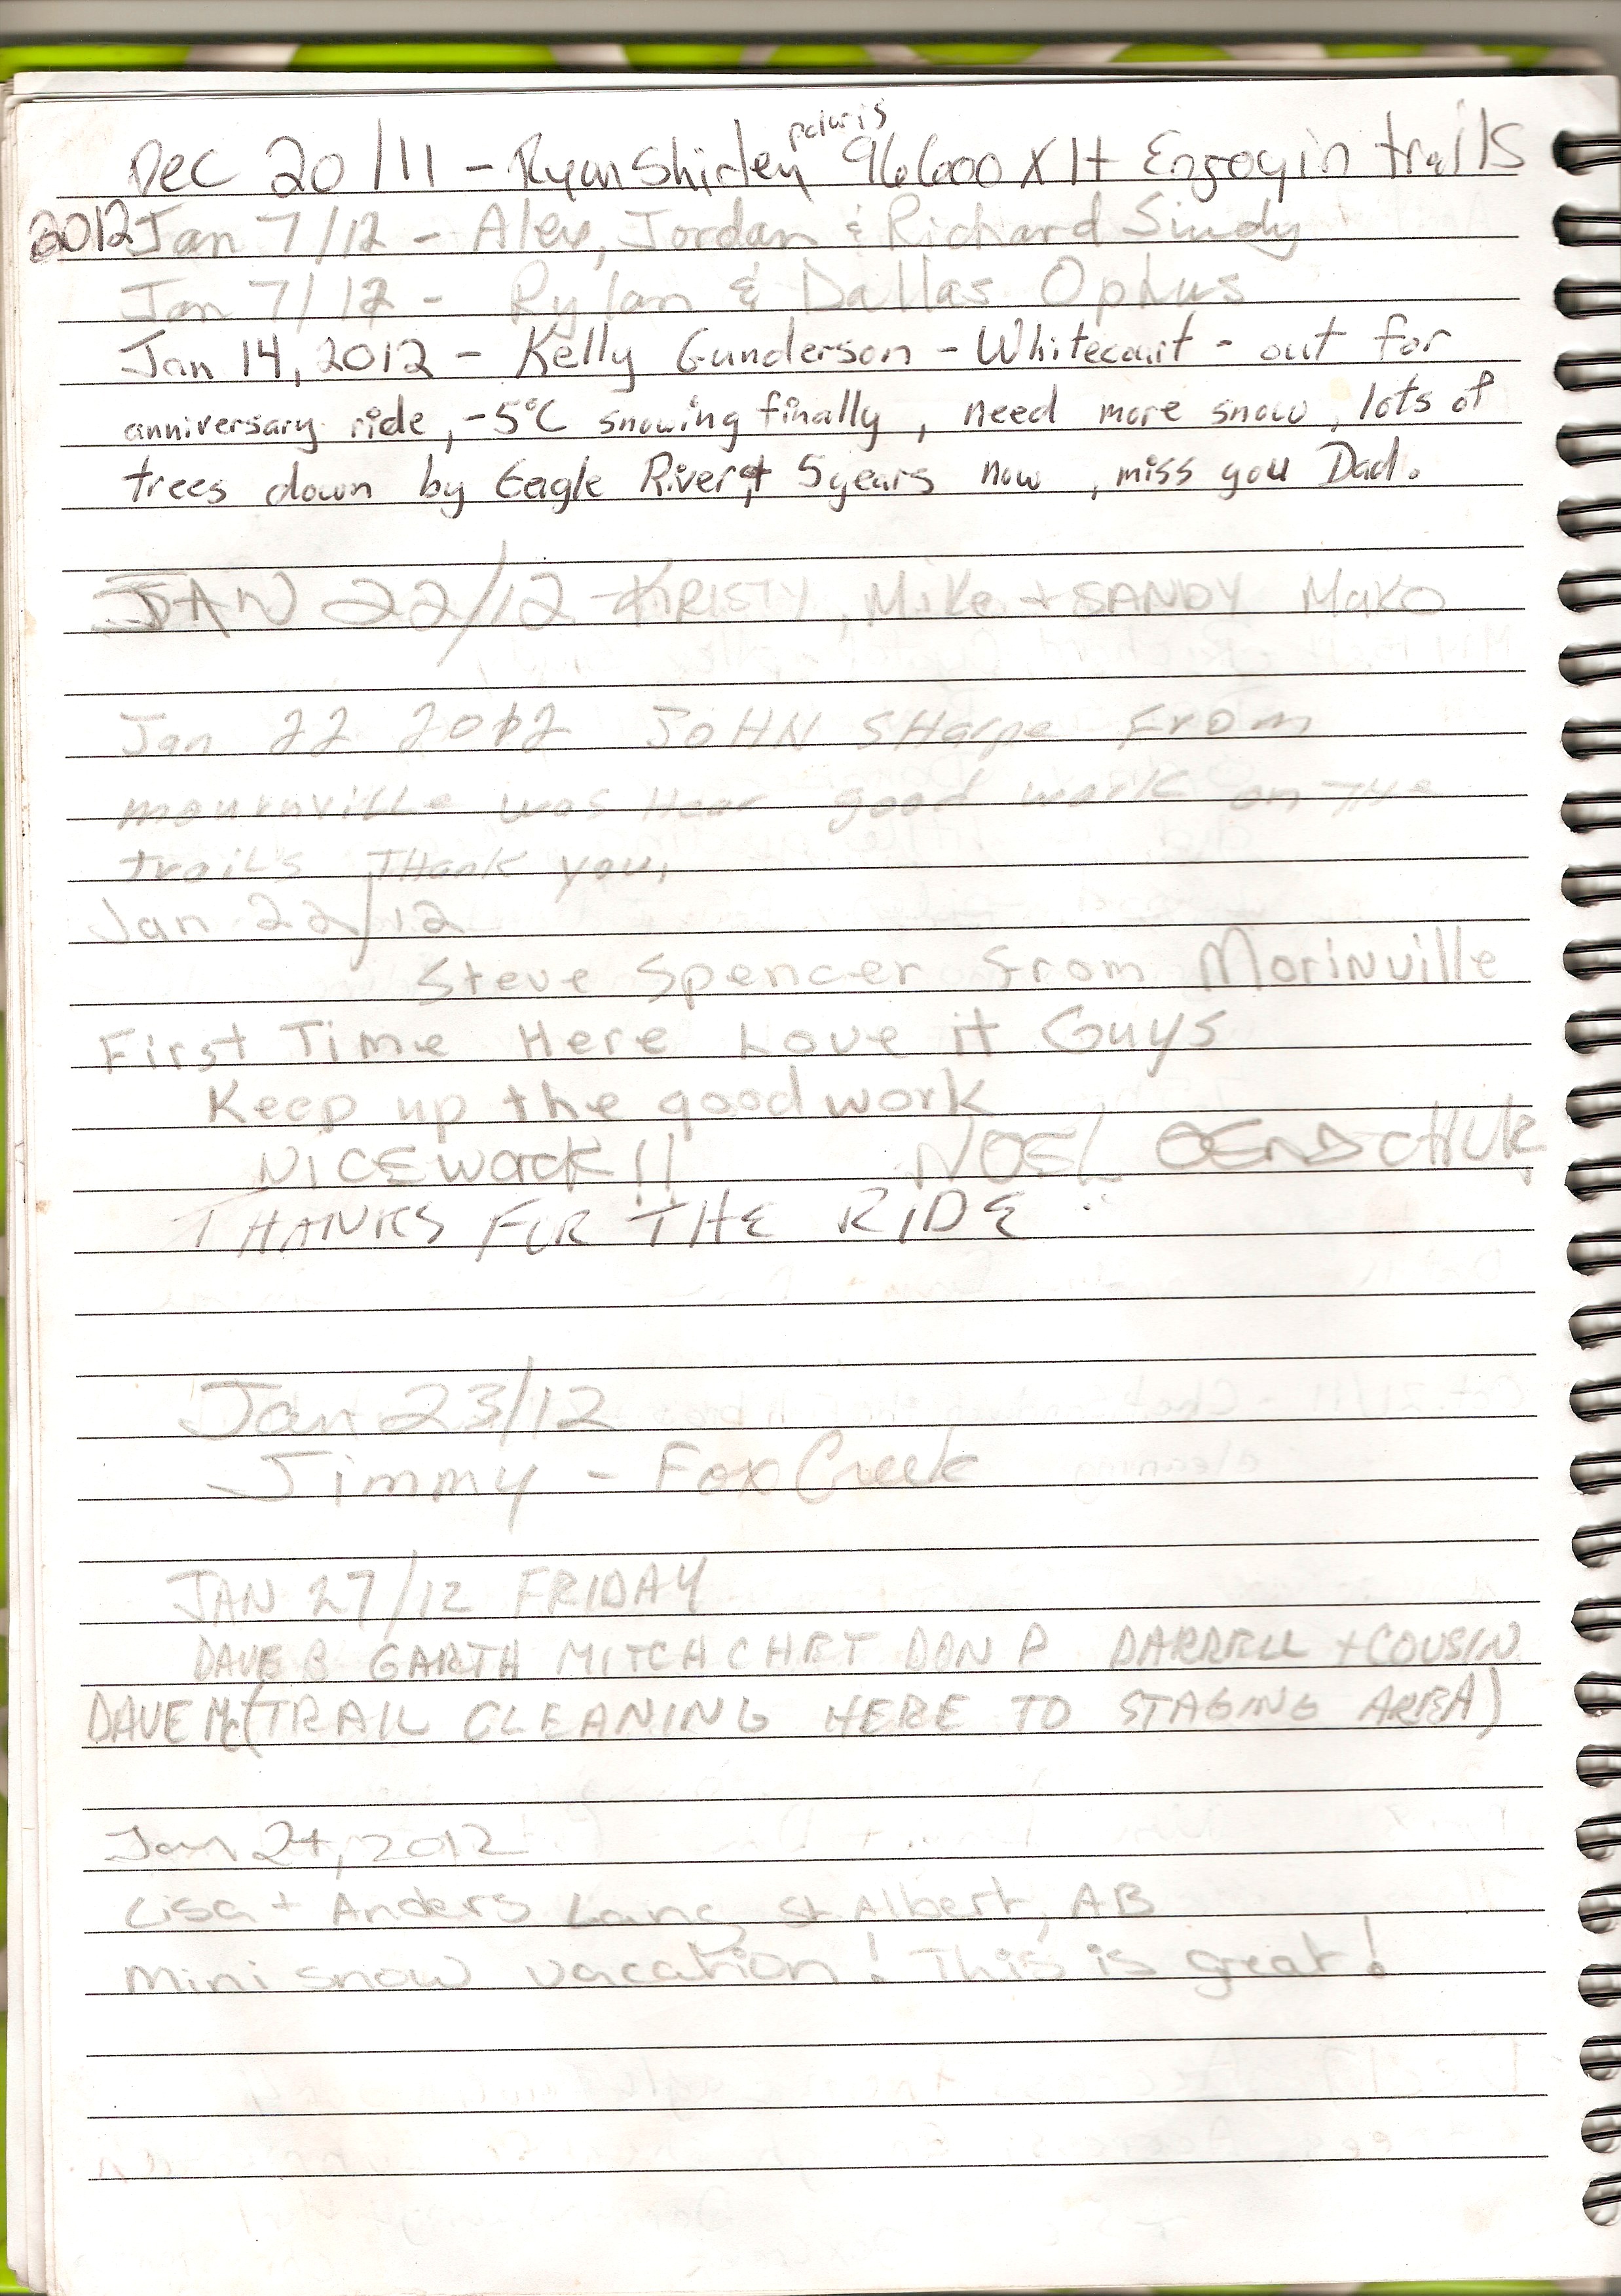 Dec 20/11 - Ryan Shirley polaris 96 600 Xlt Enjoyin trails
2012 Jan 7/12 - Alex, Jordan & Richard Sindy
Jan 7/12 - Rylan & Dallas Ophus
Jan 14, 2012 - Kelly Gunderson - Whitecourt - out for
anniversary ride, -5°C snowing finally, need more snow, lots of
trees down by Eagle River, 5 years now, miss you Dad.
JAN 22/12 - KRISTY, Mike + SANDY MAKO
Jan 22 2012 JOHN SHarpe From
mournville was Hear good wark on THe
trails THank you,
Jan 22/12
Steve Spencer from Morinville
First Time Here Love it Guys
Keep up the good work
NICE work!! NOEL
THANKS FUR THE RIDE
Jan 23/12
Jimmy - Fox Creek
JAN 27/12 FRIDAY
DAVE B GARTH MITCH CHET DON P DARRELL + COUSIN
DAVE Mc (TRAIL CLEANING HERE TO STAGING AREA)
Jan 24, 2012
Lisa + Anders Lang St Albert, AB
mini snow vacation! This is great!